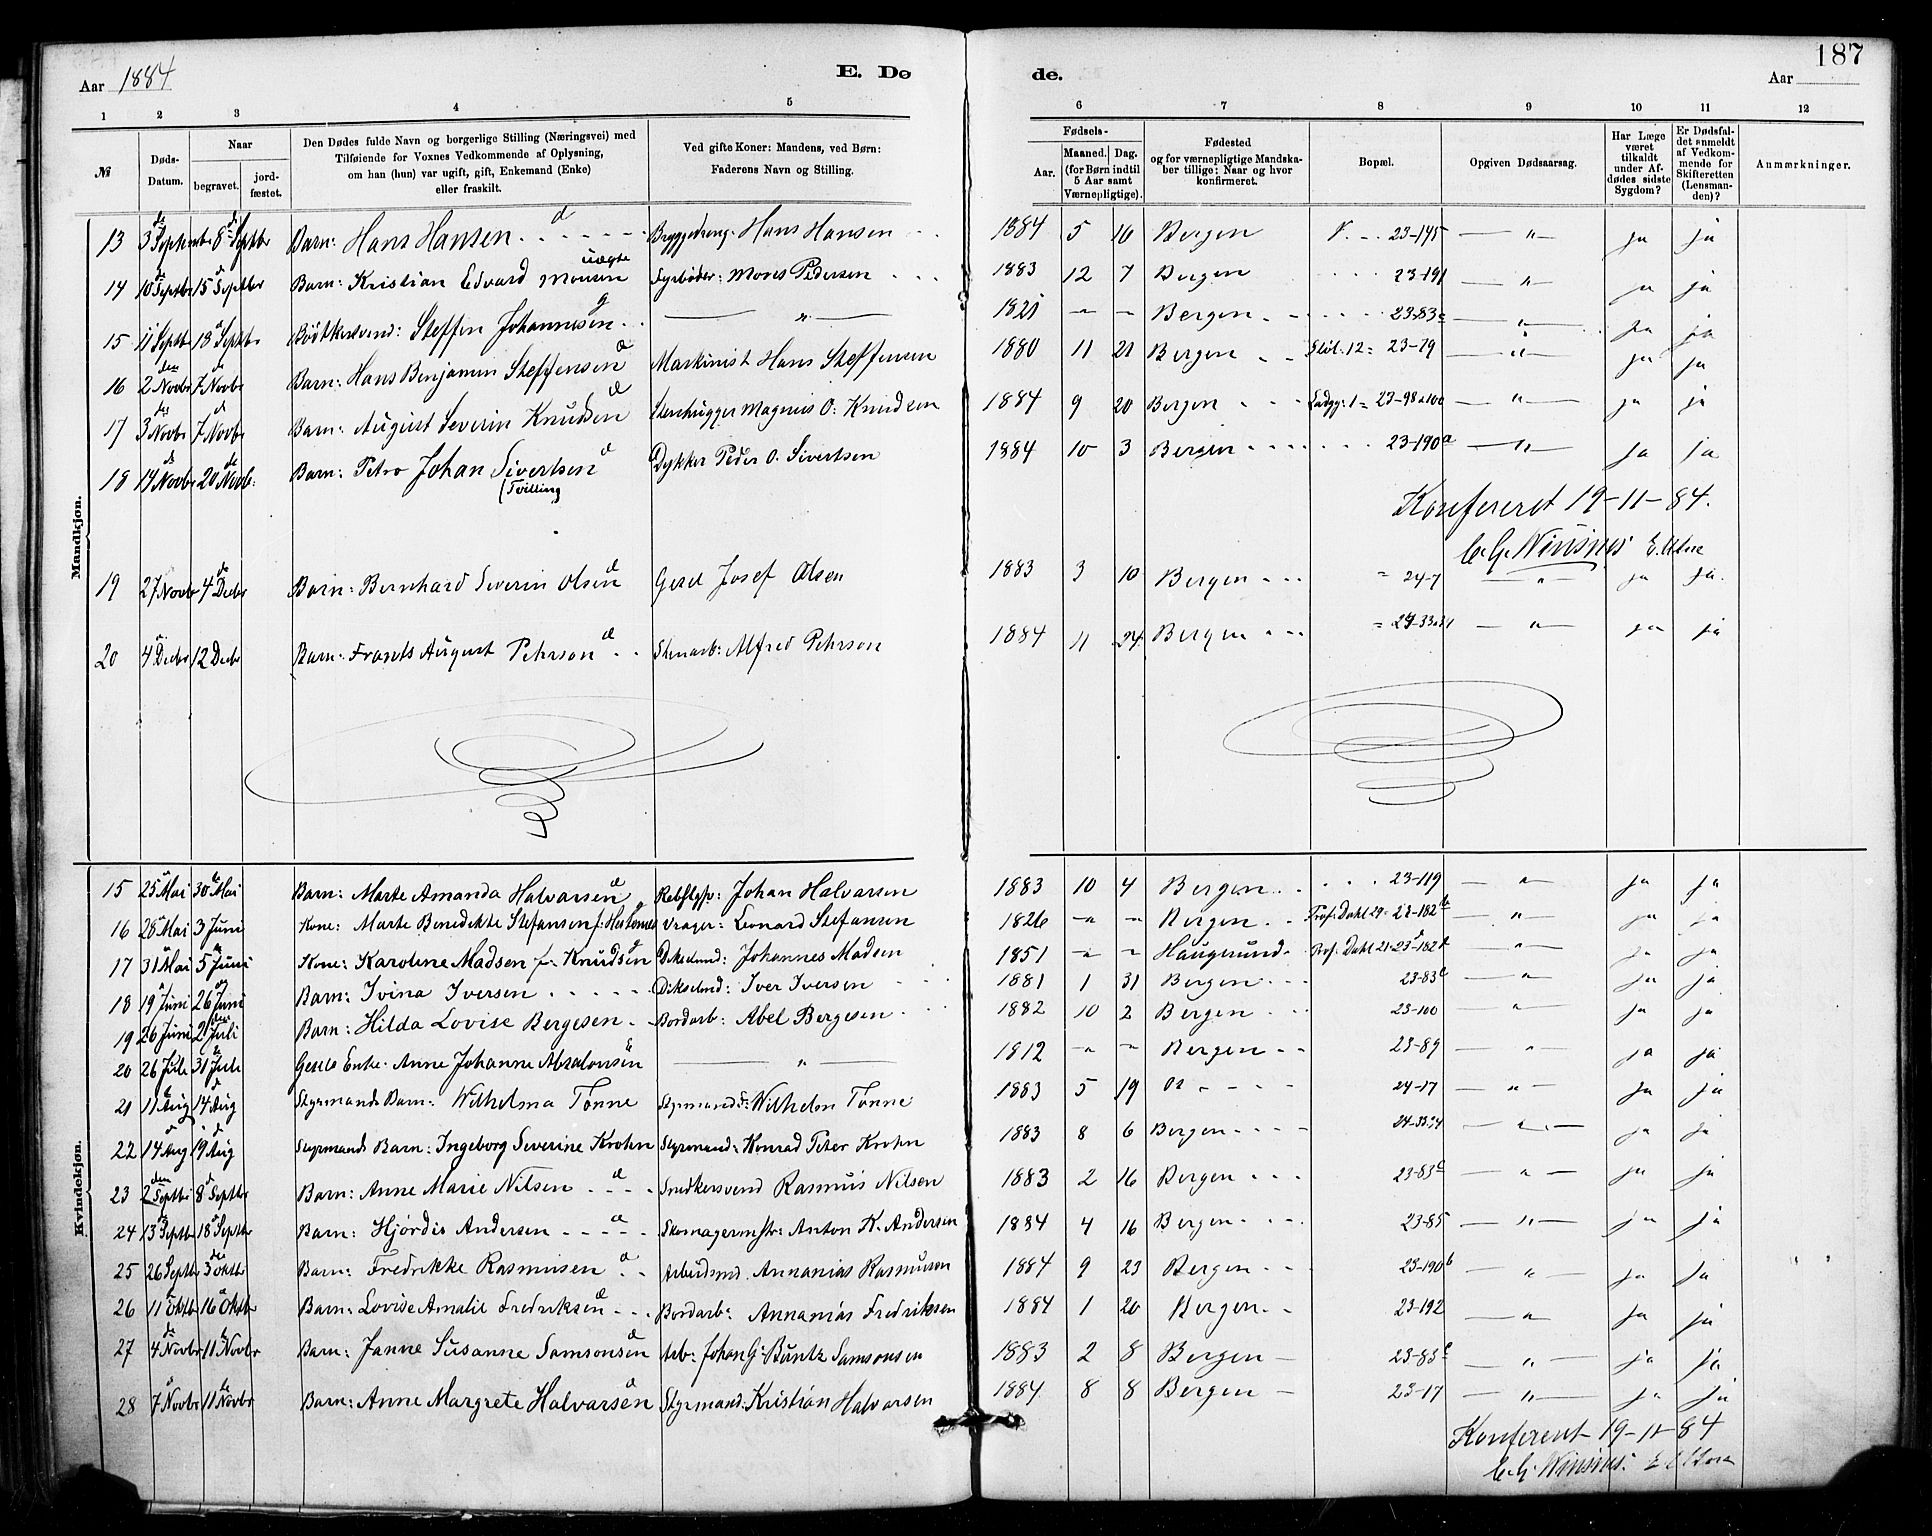 187
Aar 1884 E. Dø
de. Aar
1 2 3 4 5 6 7 8 9 10 11 12
№ Døds-Datum. Naar begravet. jord-fæstet. Den Dødes fulde Navn og borgerlige Stilling (Næringsvei) med Tilføiende for Voxnes Vedkommende af Oplysning, om han (hun) var ugift, gift, Enkemand (Enke) eller fraskilt. Ved gifte Koner: Mandens, ved Børn: Faderens Navn og Stilling. Fødsels- Aar. Maaned. Dag. (for Børn indtil 5 Aar samt Værnepligtige). Fødested og for værnepligtige Mandskaber tillige: Naar og hvor konfirmeret. Bopæl. Opgiven Dødsaarsag. Har Læge været tilkaldt under Afdødes sidste Sygdom? Er Dødsfaldet anmeldt af Vedkommende for Skifteretten (Lensmanden)? Anmærkninger.
Mandkjøn.
13 3 Septembr 8 Septbr Barn: Hans Hansen Bryggedreng: Hans Hansen 1884 5 10 Bergen 23-145 — " — ja ja
14 10 Septbr 15 Septbr Barn: Kristian Edvard Monsen uægte Fyrbøder: Mons Pedersen 1883 12 7 Bergen 23-191 — " — ja ja
15 11 Septb 18 Septbr Bødtkersvend: Steffen Johannesen — " — 1821 — — Bergen 23-83c — " — ja ja
16 2 Novbr 7 Novbr Barn: Hans Benjamin Steffensen Maskinist Hans Steffensen 1880 11 21 Bergen 12 = 23-79 — " — ja ja
17 3 Novbr 7 Novbr Barn: August Severin Knudsen Stenhugger Magnus O. Knudsen 1884 9 20 Bergen 23-98 a 100 — " — ja ja
18 14 Novbr 20 Novb: Barn: Petro Johan Sivertsen (Tvilling Dykker Peder O. Sivertsen 1884 10 3 Bergen 23-190a — " — ja ja
Konfereret 19-11-84.
19 27 Novbr 4 Decbr Barn: Bernhard Severin Olsen Gesel Josef Olsen 1883 3 10 Bergen = 24-7 — " — ja ja.
20 4 Decbr 12 Decbr Barn: Frants August Pehrson Stenarb: Alfred Pehrson 1884 11 24 Bergen — " — ja ja
Kvindekjøn.
15 25 Mai 30 Mai Barn: Marte Amanda Halvarsen Johan Halvarsen 1883 10 4 Bergen 23-119 — " — ja ja
16 28 Mai 3 Juni Kone: Marte Benedikte Stefansen f: Vrager: Leonard Stefansen 1826 — — Bergen Prof: Dahl 29 - 23-182b — " — ja ja
17 31 Mai 5 Juni Kone: Karoline Madsen f. Knudsen Johannes Madsen 1851 — — Haugesund Prof. Dahl 21-23-182 — " — ja ja
18 19 Juni 26 Juni Barn: Ivina Iversen Iver Iversen 1881 1 31 Bergen 23-83c — " — ja ja
19 26 Juni 2 Juli Barn: Hilda Lovise Bergesen Bordarb: Abel Bergesen 1882 10 2 Bergen 23-100 — " — ja ja
20 26 Juli 31 Juli Gesels Enke: Anne Johanne Absalonsen — " — 1812 — — Bergen 23-89 — " — ja ja
21 11 Aug 14 Aug Styrmands Barn: Wilhelma Tønne Styrmand: Wilhelm Tønne 1883 5 19 24-17 — " — ja ja
22 14 Aug 19 Aug Styrmands Barn: Ingeborg Severine Krohn Styrmand: Konrad Peter Krohn 1883 8 6 Bergen — " — ja ja
23 2 Septbr 8 Septbr Barn: Anne Marie Nilsen Snedkersvend Rasmus Nilsen 1883 2 16 Bergen 23-83c — " — ja ja
24 13 Septbr 18 Septbr Barn: Hjørdis Andersen Skomagermstr: Anton K. Andersen 1884 4 16 Bergen 23-85 — " — ja ja
25 26 Septbr 3 Oktbr Barn: Fredrikke Rasmusen Arbeidsmd. Annanias Rasmusen 1884 9 23 Bergen 23-190b — " — ja ja
26 11 Oktbr 16 Oktbr Barn: Lovise Amalie Fredriksen Bordarb: Annanias Fredriksen 1884 1 20 Bergen 23-192 — " — ja ja
27 4 Novbr 11 Novbr Barn: Janne Susanne Samsonsen Arb: Johan G: Buntz Samsonsen 1883 2 8 Bergen 23-83c — " — ja ja
28 7 Novbr 11 Novbr Barn: Anne Margrete Halvarsen Styrmand: Kristian Halvarsen 1884 8 8 Bergen 23-17 — " — ja ja
Konfereret 19-11-84